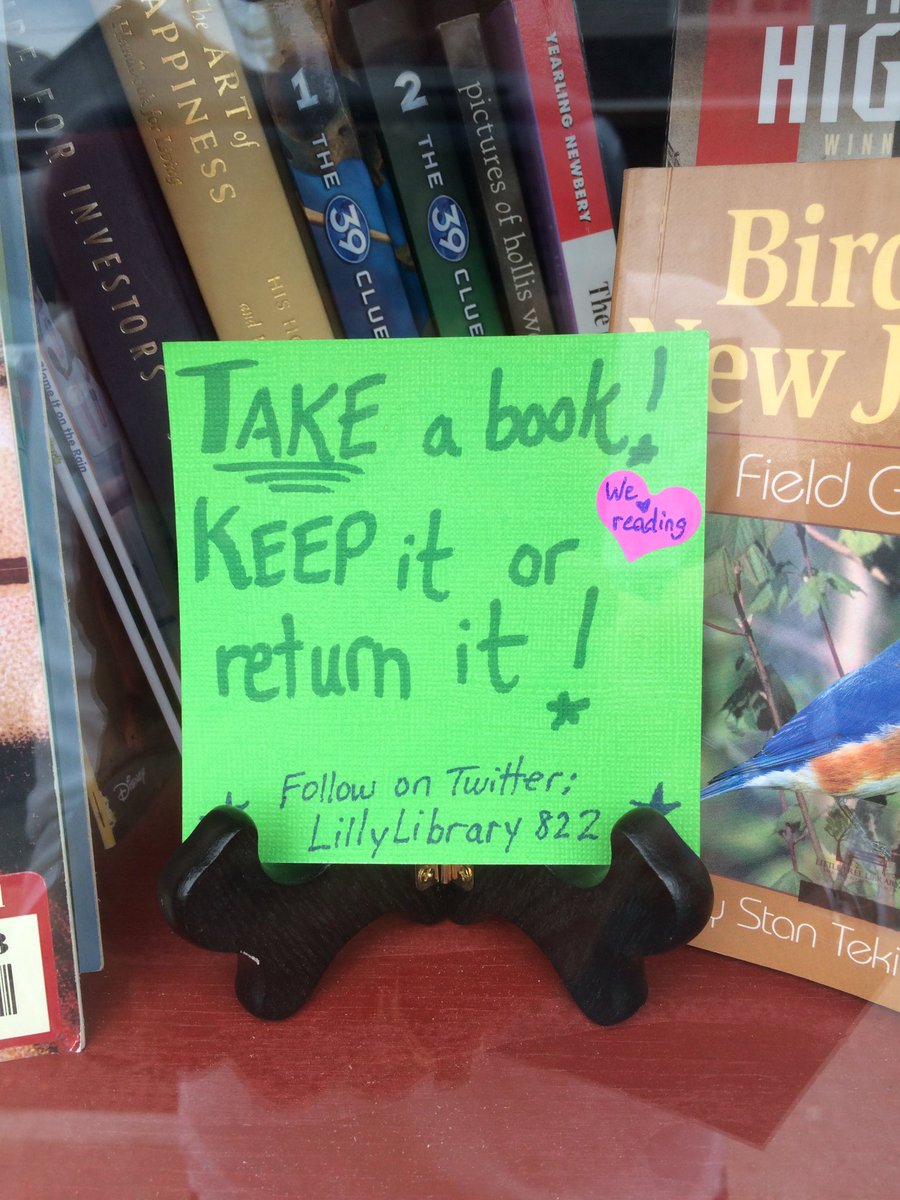 FOR INVESTORS
The ART of
HAPPINESS
A Handbook for Living
HIS
and
1 THE 39 CLUES
2 THE 39 CLUE
pictures of hollis w
YEARLING NEWBERY
The
HIG
WINN
Bird
New J
Field G
TAKE a book!
KEEP it or
return it!
We ♥
reading
Follow on Twitter:
LillyLibrary 822
Blame It on the Rain
Disney
y Stan Teki